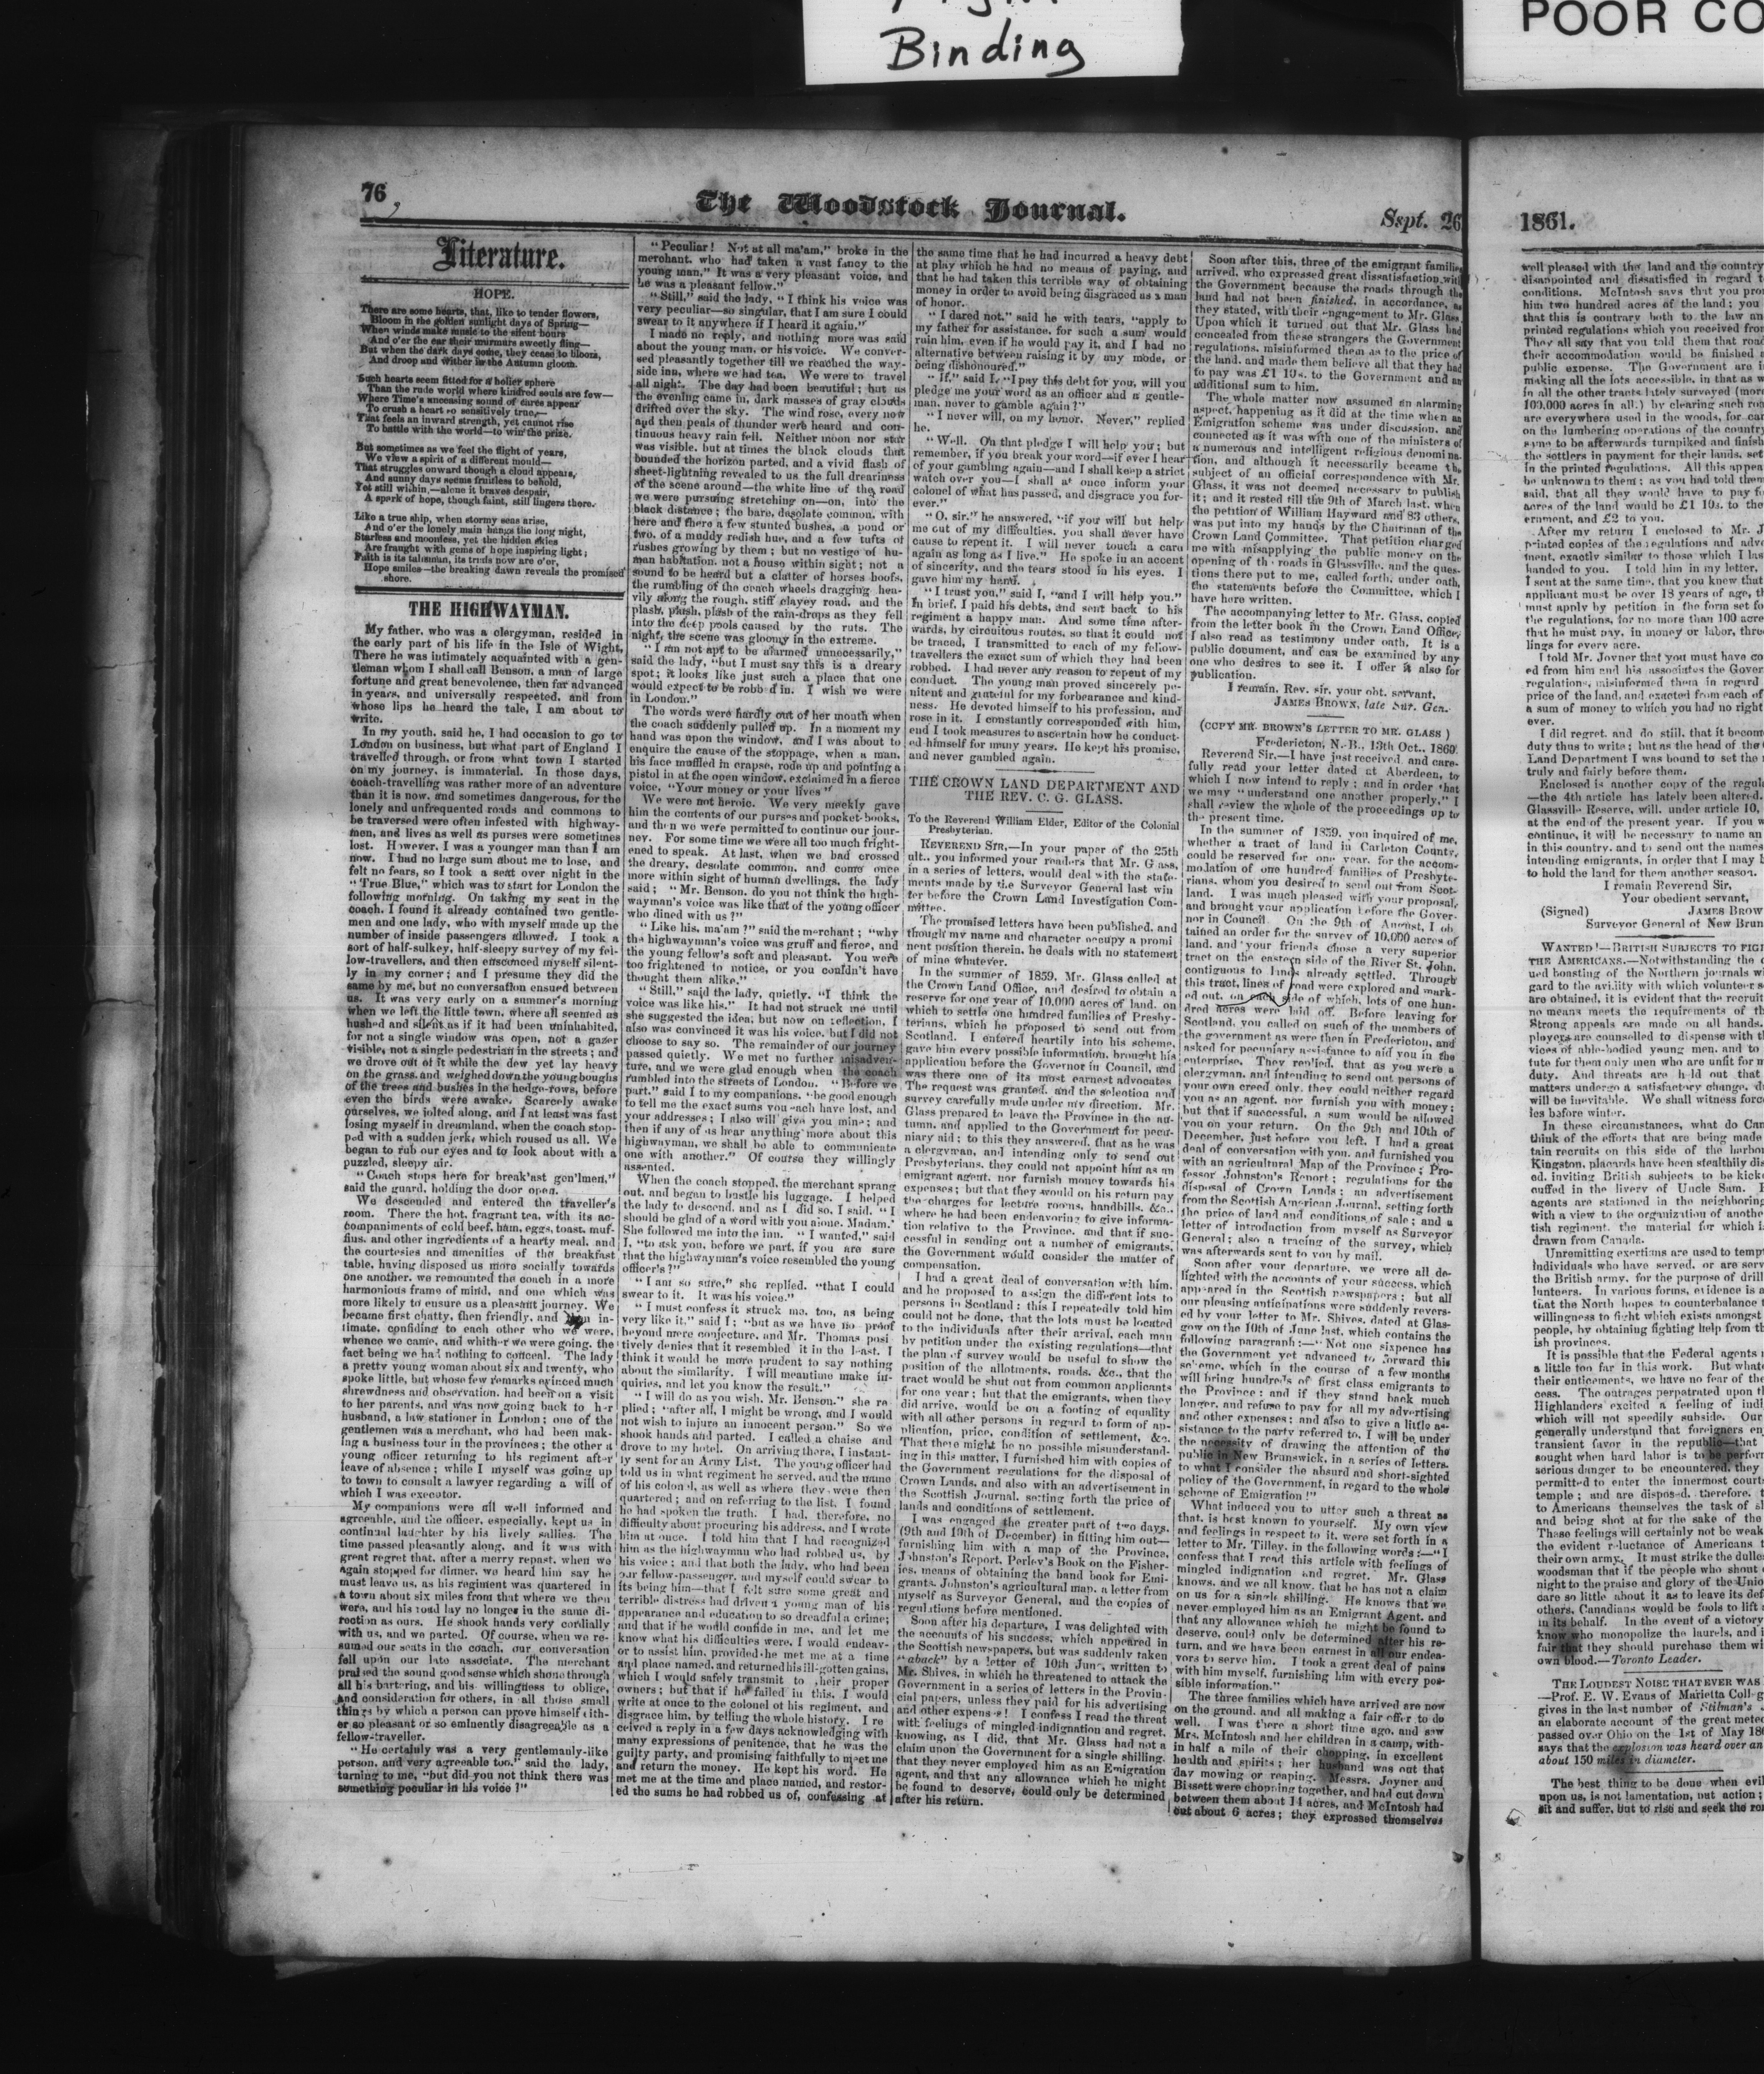 Binding
POOR CO
76
The Woodstock Journal.
Sspt. 26
Literature.
HOPE.
There are some hearts, that, like to tender flowers,
Bloom in the golden sunlight days of Spring—
When winds make music to the silent hours
And o'er the ear their murmurs sweetly fling—
But when the dark days come, they cease to bloom,
And droop and wither in the Autumn gloom.
Such hearts seem fitted for a holier sphere
Than the rude world where kindred souls are few—
Where Time's unceasing sound of cares appear
To crush a heart so sensitively true,—
That feels an inward strength, yet cannot rise
To battle with the world—to win the prize.
But sometimes as we feel the flight of years,
We view a spirit of a different mould—
That struggles onward though a cloud appears,
And sunny days seems fruitless to behold,
Yet still within,—alone it braves despair,
A spark of hope, though faint, still lingers there.
Like a true ship, when stormy seas arise,
And o'er the lonely main hangs the long night,
Starless and moonless, yet the hidden skies
Are fraught with gems of hope inspiring light;
Faith is its talisman, its trials now are o'er,
Hope smiles—the breaking dawn reveals the promised
shore.
THE HIGHWAYMAN.
My father, who was a clergyman, resided in
the early part of his life in the Isle of Wight.
There he was intimately acquainted with a gen-
tleman whom I shall call Benson, a man of large
fortune and great benevolence, then far advanced
in years, and universally respected, and from
whose lips he heard the tale, I am about to
write.
In my youth, said he, I had occasion to go to
London on business, but what part of England I
travelled through, or from what town I started
on my journey, is immaterial. In those days,
coach-travelling was rather more of an adventure
than it is now, and sometimes dangerous, for the
lonely and unfrequented roads and commons to
be traversed were often infested with highway-
men, and lives as well as purses were sometimes
lost. However, I was a younger man than I am
now. I had no large sum about me to lose, and
felt no fears, so I took a seat over night in the
"True Blue," which was to start for London the
following morning. On taking my seat in the
coach, I found it already contained two gentle-
men and one lady, who with myself made up the
number of inside passengers allowed. I took a
sort of half-sulkey, half-sleepy survey of my fel-
low-travellers, and then ensconced myself silent-
ly in my corner; and I presume they did the
same by me, but no conversation ensued between
us. It was very early on a summer's morning
when we left the little town, where all seemed as
hushed and silent as if it had been uninhabited,
for not a single window was open, not a gazer
visible, not a single pedestrian in the streets; and
we drove out of it while the dew yet lay heavy
on the grass and weighed down the young boughs
of the trees and bushes in the hedge-rows, before
even the birds were awake. Scarcely awake
ourselves, we jolted along, and I at least was fast
losing myself in dreamland, when the coach stop-
ped with a sudden jerk, which roused us all. We
began to rub our eyes and to look about with a
puzzled, sleepy air.
"Coach stops here for break'ast gen'lmen,"
said the guard, holding the door open.
We descended and entered the traveller's
room. There the hot, fragrant tea, with its ac-
companiments of cold beef, ham, eggs, toast, muf-
fins, and other ingredients of a hearty meal, and
the courtesies and amenities of the breakfast
table, having disposed us more socially towards
one another, we remounted the coach in a more
harmonious frame of mind, and one which was
more likely to ensure us a pleasant journey. We
became first chatty, then friendly, and in-
timate, confiding to each other who we were,
whence we came, and whither we were going, the
fact being we had nothing to conceal. The lady
a pretty young woman about six and twenty, who
spoke little, but whose few remarks evinced much
shrewdness and observation, had been on a visit
to her parents, and was now going back to her
husband, a law stationer in London; one of the
gentlemen was a merchant, who had been mak-
ing a business tour in the provinces; the other a
young officer returning to his regiment after
leave of absence; while I myself was going up
to town to consult a lawyer regarding a will of
which I was executor.
My companions were all well informed and
agreeable, and the officer, especially, kept us in
continual laughter by his lively sallies. The
time passed pleasantly along, and it was with
great regret that, after a merry repast, when we
again stopped for dinner, we heard him say he
must leave us, as his regiment was quartered in
a town about six miles from that where we then
were, and his road lay no longer in the same di-
rection as ours. He shook hands very cordially
with us, and we parted. Of course, when we re-
sumed our seats in the coach, our conversation
fell upon our late associate. The merchant
praised the sound good sense which shone through
all his bartering, and his willingness to oblige,
and consideration for others, in all those small
things by which a person can prove himself eith-
er so pleasant or so eminently disagreeable as a
fellow-traveller.
"He certainly was a very gentlemanly-like
person, and very agreeable too," said the lady,
turning to me, "but did you not think there was
something peculiar in his voice?"
"Peculiar! Not at all ma'am," broke in the
merchant, who had taken a vast fancy to the
young man," It was a very pleasant voice, and
he was a pleasant fellow."
"Still," said the lady, "I think his voice was
very peculiar—so singular, that I am sure I could
swear to it anywhere if I heard it again."
I made no reply, and nothing more was said
about the young man, or his voice. We conver-
sed pleasantly together till we reached the way-
side inn, where we had tea. We were to travel
all night. The day had been beautiful; but as
the evening came in, dark masses of gray clouds
drifted over the sky. The wind rose, every now
and then peals of thunder were heard and con-
tinuous heavy rain fell. Neither moon nor star
was visible, but at times the black clouds that
bounded the horizon parted, and a vivid flash of
sheet-lightning revealed to us the full dreariness
of the scene around—the white line of the road
we were pursuing stretching on—on, into the
black distance; the bare, desolate common, with
here and there a few stunted bushes, a pond or
two, of a muddy redish hue, and a few tufts of
rushes growing by them; but no vestige of hu-
man habitation, not a house within sight; not a
sound to be heard but a clatter of horses hoofs,
the rumbling of the coach wheels dragging hea-
vily along the rough, stiff clayey road, and the
plash, plash, plash of the rain-drops as they fell
into the deep pools caused by the ruts. The
night, the scene was gloomy in the extreme.
"I am not apt to be alarmed unnecessarily,"
said the lady, "but I must say this is a dreary
spot; it looks like just such a place that one
would expect to be robb d in. I wish we were
in London."
The words were hardly out of her mouth when
the coach suddenly pulled up. In a moment my
hand was upon the window, and I was about to
enquire the cause of the stoppage, when a man,
his face muffled in crapse, rode up and pointing a
pistol in at the open window, exclaimed in a fierce
voice, "Your money or your lives"
We were not heroic. We very meekly gave
him the contents of our purses and pocket-books,
and then we were permitted to continue our jour-
ney. For some time we were all too much fright-
ened to speak. At last, when we had crossed
the dreary, desolate common, and come once
more within sight of human dwellings, the lady
said; "Mr. Benson, do you not think the high-
wayman's voice was like that of the young officer
who dined with us?"
"Like his, ma'am?" said the merchant; "why
the highwayman's voice was gruff and fierce, and
the young fellow's soft and pleasant. You were
too frightened to notice, or you couldn't have
thought them alike."
"Still," said the lady, quietly, "I think the
voice was like his." It had not struck me until
she suggested the idea; but now on reflection, I
also was convinced it was his voice, but I did not
choose to say so. The remainder of our journey
passed quietly. We met no further misadven-
ture, and we were glad enough when the coach
rumbled into the streets of London. "Before we
part," said I to my companions, "be good enough
to tell me the exact sums you each have lost, and
your addresses; I also will give you mine; and
then if any of us hear anything more about this
highwayman, we shall be able to communicate
one with another." Of course they willingly
assented.
When the coach stopped, the merchant sprang
out, and began to bustle his luggage. I helped
the lady to descend, and as I did so, I said, "I
should be glad of a word with you alone, Madam."
She followed me into the inn. "I wanted," said
I, "to ask you, before we part, if you are sure
that the highwayman's voice resembled the young
officer's?"
"I am so sure," she replied, "that I could
swear to it. It was his voice."
"I must confess it struck me, too, as being
very like it," said I; "but as we have no proof
beyond mere conjecture, and Mr. Thomas posi
tively denies that it resembled it in the least, I
think it would be more prudent to say nothing
about the similarity. I will meantime make in-
quiries, and let you know the result."
"I will do as you wish, Mr. Benson," she re
plied; "after all, I might be wrong, and I would
not wish to injure an innocent person." So we
shook hands and parted. I called a chaise and
drove to my hotel. On arriving there, I instant-
ly sent for an Army List. The young officer had
told us in what regiment he served, and the name
of his colonel, as well as where they were then
quartered; and on referring to the list, I found
he had spoken the truth. I had, therefore, no
difficulty about procuring his address, and I wrote
him at once. I told him that I had recognized
him as the highwayman who had robbed us, by
his voice; and that both the lady, who had been
our fellow-passenger, and myself could swear to
its being him—that I felt sure some great and
terrible distress had driven a young man of his
appearance and education to so dreadful a crime;
and that if he would confide in me, and let me
know what his difficulties were, I would endeav-
or to assist him, provided he met me at a time
and place named, and returned his ill-gotten gains,
which I would safely transmit to their proper
owners; but that if he failed in this, I would
write at once to the colonel of his regiment, and
disgrace him, by telling the whole history. I re
ceived a reply in a few days acknowledging with
many expressions of penitence, that he was the
guilty party, and promising faithfully to meet me
and return the money. He kept his word. He
met me at the time and place named, and restor-
ed the sums he had robbed us of, confessing at
the same time that he had incurred a heavy debt
at play which he had no means of paying, and
that he had taken this terrible way of obtaining
money in order to avoid being disgraced as a man
of honor.
"I dared not," said he with tears, "apply to
my father for assistance, for such a sum would
ruin him, even if he would pay it, and I had no
alternative between raising it by any mode, or
being dishonoured."
"If," said I, "I pay this debt for you, will you
pledge me your word as an officer and a gentle-
man, never to gamble again?"
"I never will, on my honor. Never," replied
he.
"Well. On that pledge I will help you; but
remember, if you break your word—if ever I hear
of your gambling again—and I shall keep a strict
watch over you—I shall at once inform your
colonel of what has passed, and disgrace you for-
ever."
"O, sir," he answered, "if you will but help
me out of my difficulties, you shall never have
cause to repent it. I will never touch a card
again as long as I live." He spoke in an accent
of sincerity, and the tears stood in his eyes. I
gave him my hand.
"I trust you," said I, "and I will help you."
In brief, I paid his debts, and sent back to his
regiment a happy man. And some time after-
wards, by circuitous routes, so that it could not
be traced, I transmitted to each of my fellow-
travellers the exact sum of which they had been
robbed. I had never any reason to repent of my
conduct. The young man proved sincerely pe-
nitent and grateful for my forbearance and kind-
ness. He devoted himself to his profession, and
rose in it. I constantly corresponded with him,
end I took measures to ascertain how he conduct-
ed himself for many years. He kept his promise,
and never gambled again.
THE CROWN LAND DEPARTMENT AND
THE REV. C. G. GLASS.
To the Reverend William Elder, Editor of the Colonial
Presbyterian.
REVEREND SIR,—In your paper of the 25th
ult., you informed your readers that Mr. Glass,
in a series of letters, would deal with the state-
ments made by the Surveyor General last win
ter before the Crown Land Investigation Com-
mittee.
The promised letters have been published, and
though my name and character occupy a promi
nent position therein, he deals with no statement
of mine whatever.
In the summer of 1859, Mr. Glass called at
the Crown Land Office, and desired to obtain a
reserve for one year of 10,000 acres of land, on
which to settle one hundred families of Presby-
terians, which he proposed to send out from
Scotland. I entered heartily into his scheme,
gave him every possible information, brought his
application before the Governor in Council, and
was there one of its most earnest advocates
The request was granted, and the selection and
survey carefully made under my direction. Mr.
Glass prepared to leave the Province in the au-
tumn, and applied to the Government for pecu-
niary aid; to this they answered, that as he was
a clergyman, and intending only to send out
Presbyterians, they could not appoint him as an
emigrant agent, nor furnish money towards his
expenses; but that they would on his return pay
the charges for lecture rooms, handbills, &c.,
where he had been endeavoring to give informa-
tion relative to the Province, and that if suc-
cessful in sending out a number of emigrants,
the Government would consider the matter of
compensation.
I had a great deal of conversation with him,
and he proposed to assign the different lots to
persons in Scotland; this I repeatedly told him
could not be done, that the lots must be located
to the individuals after their arrival, each man
by petition under the existing regulations—that
the plan of survey would be useful to show the
position of the allotments, roads, &c., that the
tract would be shut out from common applicants
for one year; but that the emigrants, when they
did arrive, would be on a footing of equality
with all other persons in regard to form of ap-
plication, price, condition of settlement, &c.
That there might be no possible misunderstand-
ing in this matter, I furnished him with copies of
the Government regulations for the disposal of
Crown Lands, and also with an advertisement in
the Scottish Journal, setting forth the price of
lands and conditions of settlement.
I was engaged the greater part of two days,
(9th and 10th of December) in fitting him out—
furnishing him with a map of the Province,
Johnston's Report, Perley's Book on the Fisher-
ies, means of obtaining the hand book for Emi-
grants, Johnston's agricultural map, a letter from
myself as Surveyor General, and the copies of
regulations before mentioned.
Soon after his departure, I was delighted with
the accounts of his success, which appeared in
the Scottish newspapers, but was suddenly taken
"aback" by a letter of 10th June, written to
Mr. Shives, in which he threatened to attack the
Government in a series of letters in the Provin-
cial papers, unless they paid for his advertising
and other expenses! I confess I read the threat
with feelings of mingled indignation and regret,
knowing, as I did, that Mr. Glass had not a
claim upon the Government for a single shilling.
that they never employed him as an Emigration
agent, and that any allowance which he might
be found to deserve, could only be determined
after his return.
Soon after this, three of the emigrant families
arrived, who expressed great dissatisfaction with
the Government because the roads through the
land had not been finished, in accordance, as
they stated, with their engagement to Mr. Glass.
Upon which it turned out that Mr. Glass had
concealed from these strangers the Government
regulations, misinformed them as to the price of
the land, and made them believe all that they had
to pay was £1 10s. to the Government and an
additional sum to him.
The whole matter now assumed an alarming
aspect, happening as it did at the time when an
Emigration scheme was under discussion, and
connected as it was with one of the ministers of
a numerous and intelligent religious denomina-
tion, and although it necessarily became the
subject of an official correspondence with Mr.
Glass, it was not deemed necessary to publish
it; and it rested till the 9th of March last, when
the petition of William Hayward and 83 others,
was put into my hands by the Chairman of the
Crown Land Committee. That petition charged
me with misapplying the public money on the
opening of the roads in Glassville, and the ques-
tions there put to me, called forth, under oath,
the statements before the Committee, which I
have here written.
The accompanying letter to Mr. Glass, copied
from the letter book in the Crown Land Office,
I also read as testimony under oath. It is a
public document, and can be examined by any
one who desires to see it. I offer it also for
publication.
I remain, Rev. sir, your obt. servant,
JAMES BROWN, late Sur. Gen.
(COPY MR. BROWN'S LETTER TO MR. GLASS )
Fredericton, N. B., 13th Oct., 1860.
Reverend Sir.—I have just received, and care-
fully read your letter dated at Aberdeen, to
which I now intend to reply; and in order that
we may "understand one another properly," I
shall review the whole of the proceedings up to
the present time.
In the summer of 1859, you inquired of me,
whether a tract of land in Carleton County,
could be reserved for one year, for the accom-
modation of one hundred families of Presbyte-
rians, whom you desired to send out from Scot-
land. I was much pleased with your proposal,
and brought your application before the Gover-
nor in Council. On the 9th of August, I ob-
tained an order for the survey of 10,000 acres of
land, and your friends chose a very superior
tract on the eastern side of the River St. John,
contiguous to lands already settled. Through
this tract, lines of road were explored and mark-
ed out, on each side of which, lots of one hun-
dred acres were laid off. Before leaving for
Scotland, you called on such of the members of
the government as were then in Fredericton, and
asked for pecuniary assistance to aid you in the
enterprise. They replied, that as you were a
clergyman, and intending to send out persons of
your own creed only, they could neither regard
you as an agent, nor furnish you with money;
but that if successful, a sum would be allowed
you on your return. On the 9th and 10th of
December, just before you left, I had a great
deal of conversation with you, and furnished you
with an agricultural Map of the Province; Pro-
fessor Johnston's Report; regulations for the
disposal of Crown Lands; an advertisement
from the Scottish American Journal, setting forth
the price of land and conditions of sale; and a
letter of introduction from myself as Surveyor
General; also a tracing of the survey, which
was afterwards sent to you by mail.
Soon after your departure, we were all de-
lighted with the accounts of your success, which
appeared in the Scottish newspapers; but all
our pleasing anticipations were suddenly revers-
ed by your letter to Mr. Shives, dated at Glas-
gow on the 10th of June last, which contains the
following paragraph:—"Not one sixpence has
the Government yet advanced to forward this
scheme, which in the course of a few months
will bring hundreds of first class emigrants to
the Province; and if they stand back much
longer, and refuse to pay for all my advertising
and other expenses; and also to give a little as-
sistance to the party referred to, I will be under
the necessity of drawing the attention of the
public in New Brunswick, in a series of letters,
to what I consider the absurd and short-sighted
policy of the Government, in regard to the whole
scheme of Emigration!"
What induced you to utter such a threat as
that, is best known to yourself. My own view
and feelings in respect to it, were set forth in a
letter to Mr. Tilley, in the following words:—"I
confess that I read this article with feelings of
mingled indignation and regret. Mr. Glass
knows, and we all know, that he has not a claim
on us for a single shilling. He knows that we
never employed him as an Emigrant Agent, and
that any allowance which he might be found to
deserve, could only be determined after his re-
turn, and we have been earnest in all our endea-
vors to serve him. I took a great deal of pains
with him myself, furnishing him with every pos-
sible information."
The three families which have arrived are now
on the ground, and all making a fair offer to do
well. I was there a short time ago, and saw
Mrs. McIntosh and her children in a camp, with-
in half a mile of their chopping, in excellent
health and spirits; her husband was out that
day mowing or reaping. Messrs. Joyner and
Bissett were chopping together, and had cut down
between them about 14 acres, and McIntosh had
cut about 6 acres; they expressed themselves
1861.
well pleased with the land and the country
disappointed and dissatisfied in regard
conditions. McIntosh says that you
him two hundred acres of the land; you
that this is contrary both to the law an
printed regulations which you received from
They all say that you told them that road
their accommodation would be finished
public expense. The Government are
making all the lots accessible, in that as
in all the other tracts lately surveyed (more
100,000 acres in all.) by clearing such
are everywhere used in the woods, for
on the lumbering operations of the country
same to be afterwards turnpiked and finish
the settlers in payment for their lands, set
in the printed regulations. All this appea
be unknown to them; as you had told them
said, that all they would have to pay
acres of the land would be £1 10s. to the
ernment, and £2 to you.
After my return I enclosed to Mr. J
printed copies of the regulations and adve
ment, exactly similar to those which I las
handed to you. I told him in my letter,
I sent at the same time, that you knew that
applicant must be over 18 years of age, th
must apply by petition in the form set fo
the regulations, for no more than 100 acre
that he must pay, in money or labor, three
lings for every acre.
I told Mr. Joyner that you must have co
ed from him and his associates the Gover
regulations, misinformed them in regard
price of the land, and exacted from each of
a sum of money to which you had no right
ever.
I did regret, and do still, that it becom
duty thus to write; but as the head of the
Land Department I was bound to set the
truly and fairly before them.
Enclosed is another copy of the regula
—the 4th article has lately been altered.
Glassville Reserve, will, under article 10,
at the end of the present year. If you w
continue, it will be necessary to name an
in this country, and to send out the names
intending emigrants, in order that I may
to hold the land for them another season.
I remain Reverend Sir,
Your obedient servant,
(Signed) JAMES BROW
Surveyor General of New Brun
WANTED!—BRITISH SUBJECTS TO FIGH
THE AMERICANS.—Notwithstanding the c
ued boasting of the Northern journals wi
gard to the avidity with which volunteer s
are obtained, it is evident that the recruit
no means meets the requirements of th
Strong appeals are made on all hands.
ployers are counselled to dispense with th
vices of able-bodied young men, and to
tute for them only men who are unfit for m
duty. And threats are held out that
matters undergo a satisfactory change,
will be inevitable. We shall witness force
ies before winter.
In these circumstances, what do Can
think of the efforts that are being made
tain recruits on this side of the
Kingston, placards have been stealthily dis
ed, inviting British subjects to be kick
cuffed in the livery of Uncle Sam.
agents are stationed in the neighboring
with a view to the organization of anothe
tish regiment, the material for which i
drawn from Canada.
Unremitting exertions are used to temp
individuals who have served, or are serv
the British army, for the purpose of drill
lunteers. In various forms, evidence is a
that the North hopes to counterbalance
willingness to fight which exists amongst
people, by obtaining fighting help from th
ish provinces.
It is possible that the Federal agents
a little too far in this work. But what
their enticements, we have no fear of the
cess. The outrages perpetrated upon th
Highlanders excited a feeling of indi
which will not speedily subside. Our
generally understand that foreigners en
transient favor in the republic—that
sought when hard labor is to be perform
serious danger to be encountered, they
permitted to enter the innermost court
temple; and are disposed, therefore, t
to Americans themselves the task of
and being shot at for the sake of the
These feelings will certainly not be weak
the evident reluctance of Americans
their own army. It must strike the dulles
woodsman that if the people who shout
night to the praise and glory of the Unio
care so little about it as to leave its def
others, Canadians would be fools to lift
in its behalf. In the event of a victory
know who monopolize the laurels, and i
fair that they should purchase them wi
own blood.—Toronto Leader.
THE LOUDEST NOISE THAT EVER WAS
—Prof. E. W. Evans of Marietta Colleg
gives in the last number of Stilman's
an elaborate account of the great mete
passed over Ohio on the 1st of May 186
says that the explosion was heard over an
about 150 miles in diameter.
The best thing to be done when evil
upon us, is not lamentation, but action;
sit and suffer, but to rise and seek the